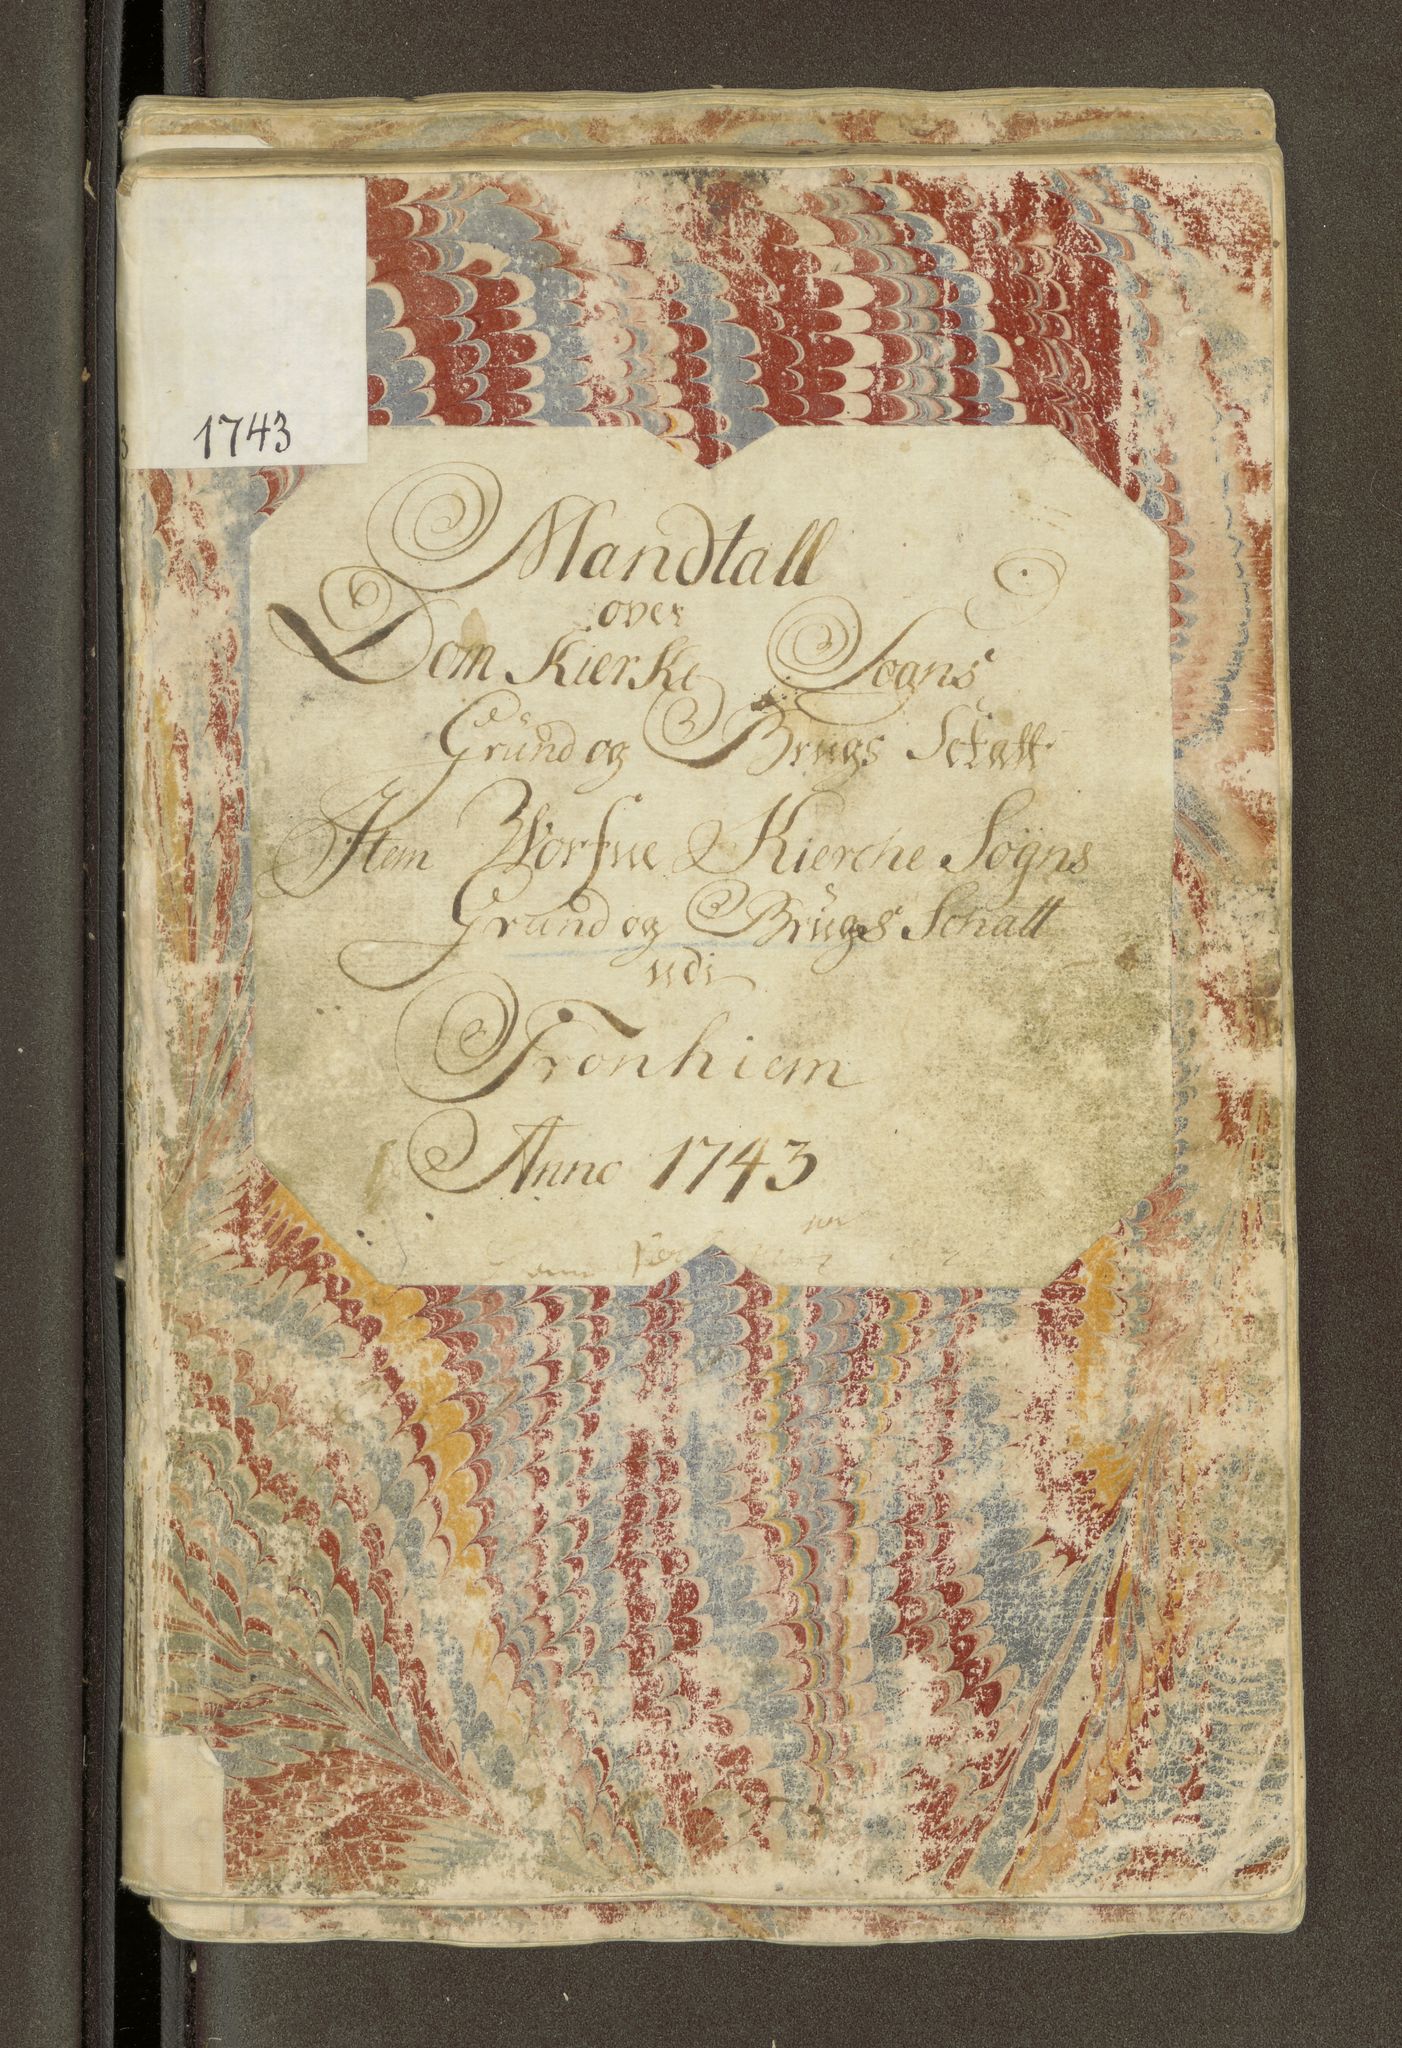 1743
Mandtall
over
Dom Kierke Sogns
Grund og Brugs Schatt
Item Worfrue Kierche Sogns
Grund og Brugs Schatt
udi
Tronhiem
Anno 1743